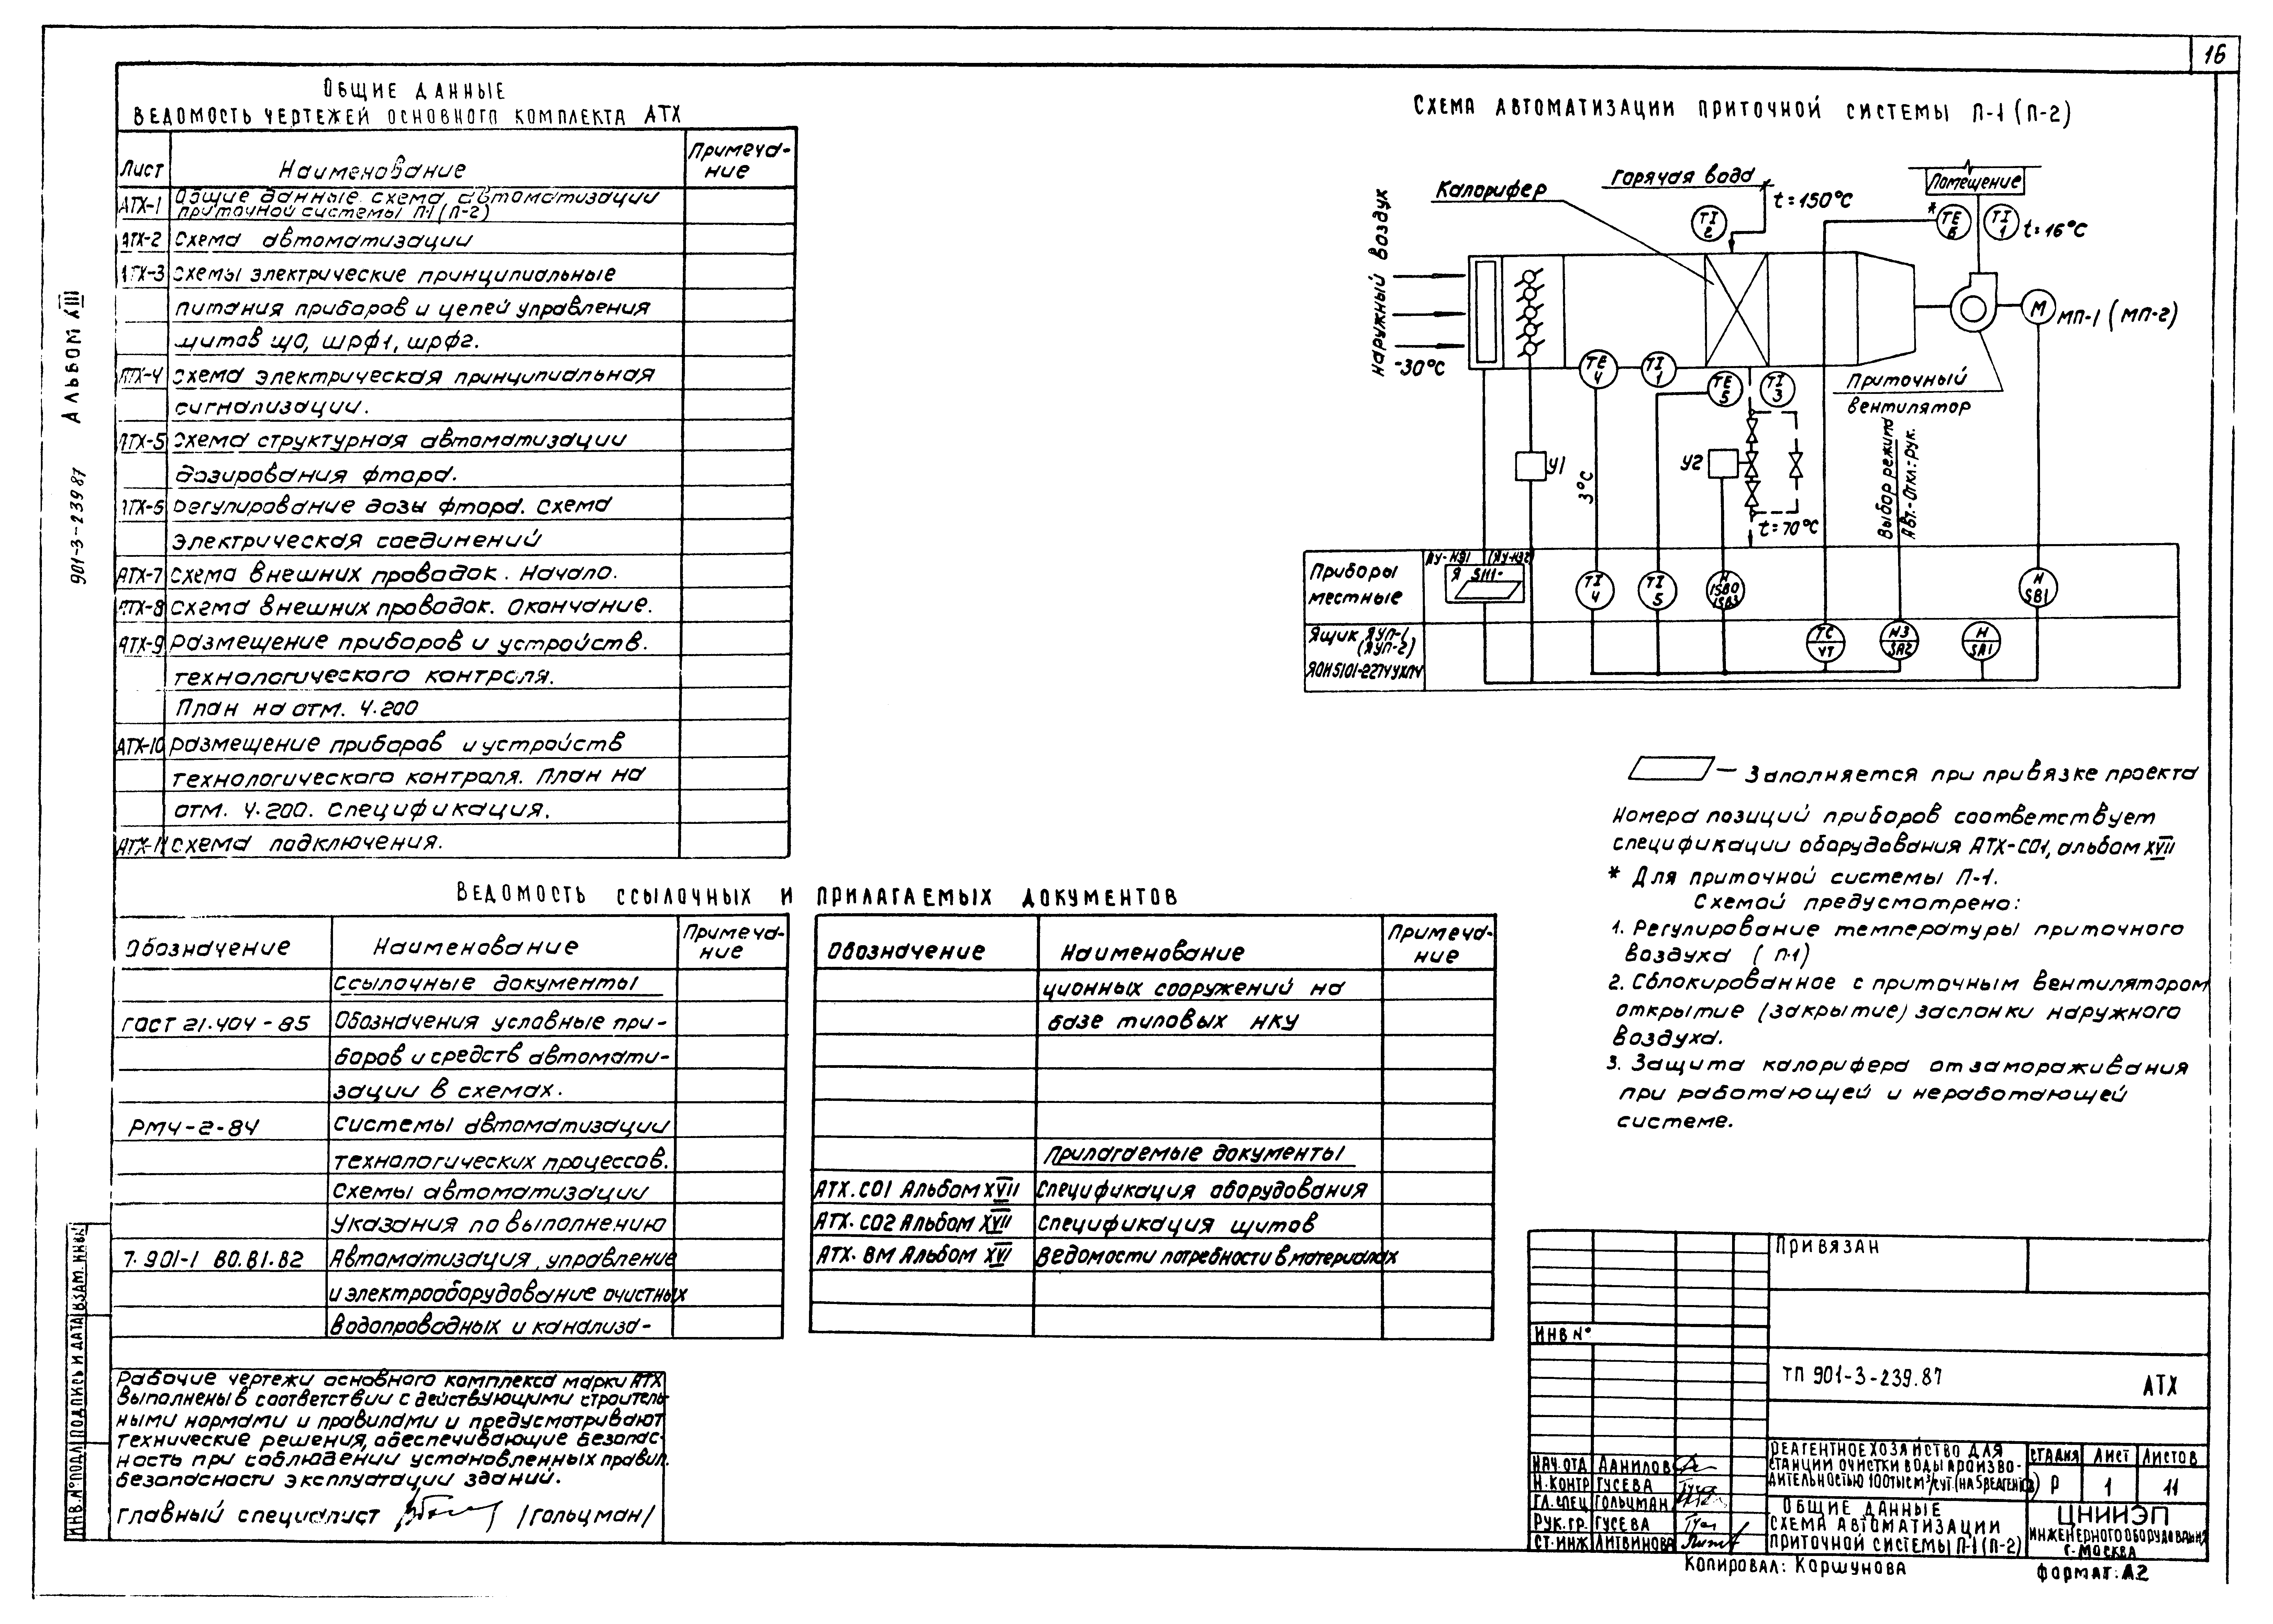 16
Альбом XIII
901-3-239 87
Общие данные
Ведомость чертежей основного комплекта АТХ
Лист
Наименование
Примеча-
ние
АТХ-1
Общие данные. Схема автоматизации
приточной системы П-1 (П-2)
АТХ-2
Схема автоматизации
АТХ-3
Схемы электрические принципиальные
питания приборов и цепей управления
щитов ЩО, ШРФ1, ШРФ2.
АТХ-4
Схема электрическая принципиальная
сигнализации.
АТХ-5
Схема структурная автоматизации
дозирования фтора.
АТХ-6
Регулирование дозы фтора. Схема
электрическая соединений
АТХ-7
Схема внешних проводок. Начало.
АТХ-8
Схема внешних проводок. Окончание.
АТХ-9
Размещение приборов и устройств.
технологического контроля.
План на отм. 4.200
АТХ-10
Размещение приборов и устройств
технологического контроля. План на
отм. 4.200. Спецификация.
АТХ-11
Схема подключения.
Ведомость ссылочных и прилагаемых документов
Обозначение
Наименование
Примеча-
ние
Ссылочные документы
ГОСТ 21.404-85
Обозначения условные при-
боров и средств автомати-
зации в схемах.
РМ4-2-84
Системы автоматизации
технологических процессов.
Схемы автоматизации
Указания по выполнению
7.901-1 В0.В1.В2
Автоматизация, управление
и электрооборудование очистных
водопроводных и канализа-
Обозначение
Наименование
Примеча-
ние
ционных сооружений на
базе типовых НКУ
Прилагаемые документы
АТХ.СО1 Альбом XVII
Спецификация оборудования
АТХ.СО2 Альбом XVII
Спецификация щитов
АТХ.ВМ Альбом XVI
Ведомости потребности в материалах
Рабочие чертежи основного комплекса марки АТХ
выполнены в соответствии с действующими строитель
ными нормами и правилами и предусматривают
технические решения, обеспечивающие безопас-
ность при соблюдении установленных правил
безопасности эксплуатации зданий.
Главный специалист /Гольцман/
Инв. № подл Подпись и дата Взам. инв.
Схема автоматизации приточной системы П-1 (П-2)
Наружный воздух
-30°С
Калорифер
Горячая вода
t=150°С
TI
2
Помещение
*
TE
6
TI
1
t=16°С
М
МП-1 (МП-2)
TE
4
TI
1
TE
5
TI
3
Приточный
вентилятор
У1
3°С
У2
t=70°С
Выбор режима
Авт.-Откл.-Рук.
Приборы
местные
ЯУ-НЭ1 (ЯУ-НЭ2)
Я 5111-
TI
4
TI
5
H
1SB0
1SB3
H
SB1
Ящик ЯУП-1
(ЯУП-2)
ЯОН5101-2274УХЛ4
TC
VT
НЗ
SA2
H
SA1
— Заполняется при привязке проекта
Номера позиций приборов соответствует
спецификации оборудования АТХ-СО1, альбом XVII
* Для приточной системы П-1.
Схемой предусмотрено:
1. Регулирование температуры приточного
воздуха (П-1)
2. Сблокированное с приточным вентилятором
открытие (закрытие) заслонки наружного
воздуха.
3. Защита калорифера от замораживания
при работающей и неработающей
системе.
Привязан
Инв №
ТП 901-3-239.87
АТХ
Нач. отд Данилов
Н. контр Гусева
Гл. спец Гольцман
Рук. гр. Гусева
Ст. инж Литвинова
Реагентное хозяйство для
станции очистки воды произво-
дительностью 100тыс м³/сут. (на 5 реагентов)
Стадия Лист Листов
Р 1 11
Общие данные
Схема автоматизации
приточной системы П-1 (П-2)
ЦНИИЭП
инженерного оборудования
г. Москва
Копировал: Коршунова
Формат: А2